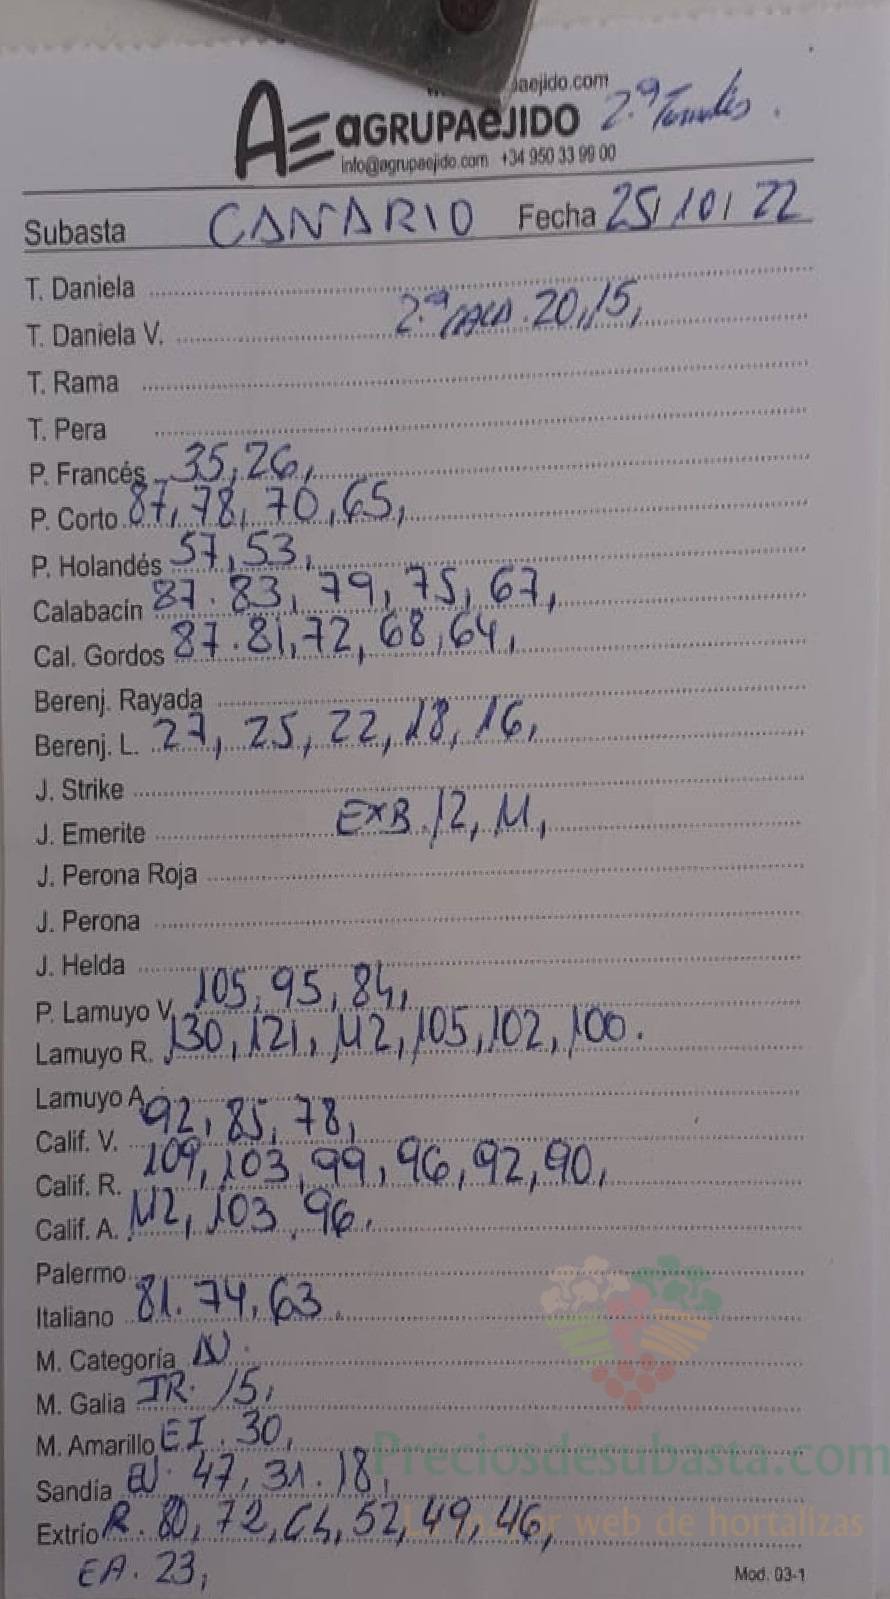 aejido.com
AGRUPAEJIDO 2ª
info@agrupaejido.com +34 950 33 99 00
Subasta CANARIO Fecha 25/10/22
T. Daniela
T. Daniela V. 2ª 20, 15,
T. Rama
T. Pera
P. Francés 35, 26,
P. Corto 87, 78, 70, 65,
P. Holandés 57, 53,
Calabacín 87. 83, 79, 75, 67,
Cal. Gordos 87. 81, 72, 68, 64,
Berenj. Rayada
Berenj. L. 27, 25, 22, 18, 16,
J. Strike
J. Emerite EXB. 12, 11,
J. Perona Roja
J. Perona
J. Helda
P. Lamuyo V. 105, 95, 84,
Lamuyo R. 130, 121, 112, 105, 102, 100.
Lamuyo A.
Calif. V. 92, 85, 78,
Calif. R. 109, 103, 99, 96, 92, 90,
Calif. A. 112, 103, 96.
Palermo
Italiano 81. 74, 63.
M. Categoría N.
M. Galia IR. 15,
M. Amarillo EI. 30,
Sandía 47, 31. 18,
Extrío R. 80, 72, 64, 52, 49, 46,
EA. 23,
Mod. 03-1
Preciosdesubasta.com
La mayor web de hortalizas